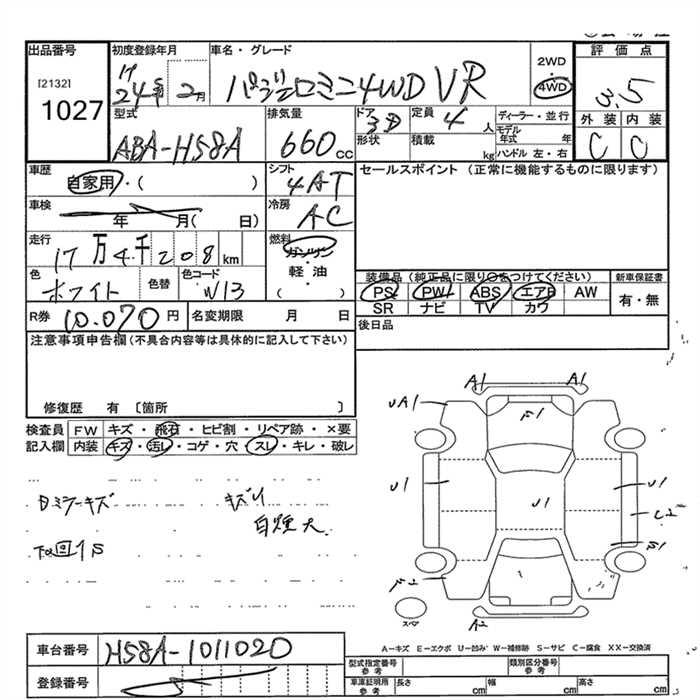 出品番号 初度登録年月 車名・グレード 2WD 評価点
[2132] H 24年 2月 パジェロミニ4WD VR 4WD 3.5
1027
型式 排気量 ドア 3D 定員 4人 ディーラー・並行 外装 内装
ABA-H58A 660cc 形状 積載 kg モデル年式 年 C C
ハンドル 左・右
車歴 シフト セールスポイント (正常に機能するものに限ります)
自家用・( ) 4AT
車検 年 月( 日) 冷房 AC
走行 燃料
17万4千208km ガソリン
軽・油
色 色替 色コード ( )
ホワイト W13
装備品 (純正品に限り○をつけてください) 新車保証書
PS PW ABS エアB AW 有・無
SR ナビ TV カワ
R券 10.070円 名変期限 月 日 後日品
注意事項申告欄 (不具合内容等は具体的に記入して下さい)
修復歴 有 〔箇所 〕
検査員 FW キズ・飛石・ヒビ割・リペア跡・×要
記入欄 内装 キズ・汚し・コゲ・穴・スレ・キレ・破レ
ミラーキズ キズり
下回りS
A1 A1
UA1 F1
U1 U1 U1
C2
S1
F2
A2
スペア
A-キズ E-エクボ U-凹み W-補修跡 S-サビ C-腐食 XX-交換済
車台番号 H58A-1011020
登録番号
型式指定番号 参考 類別区分番号 参考
車庫証明用 参考 長さ cm 幅 cm 高さ cm